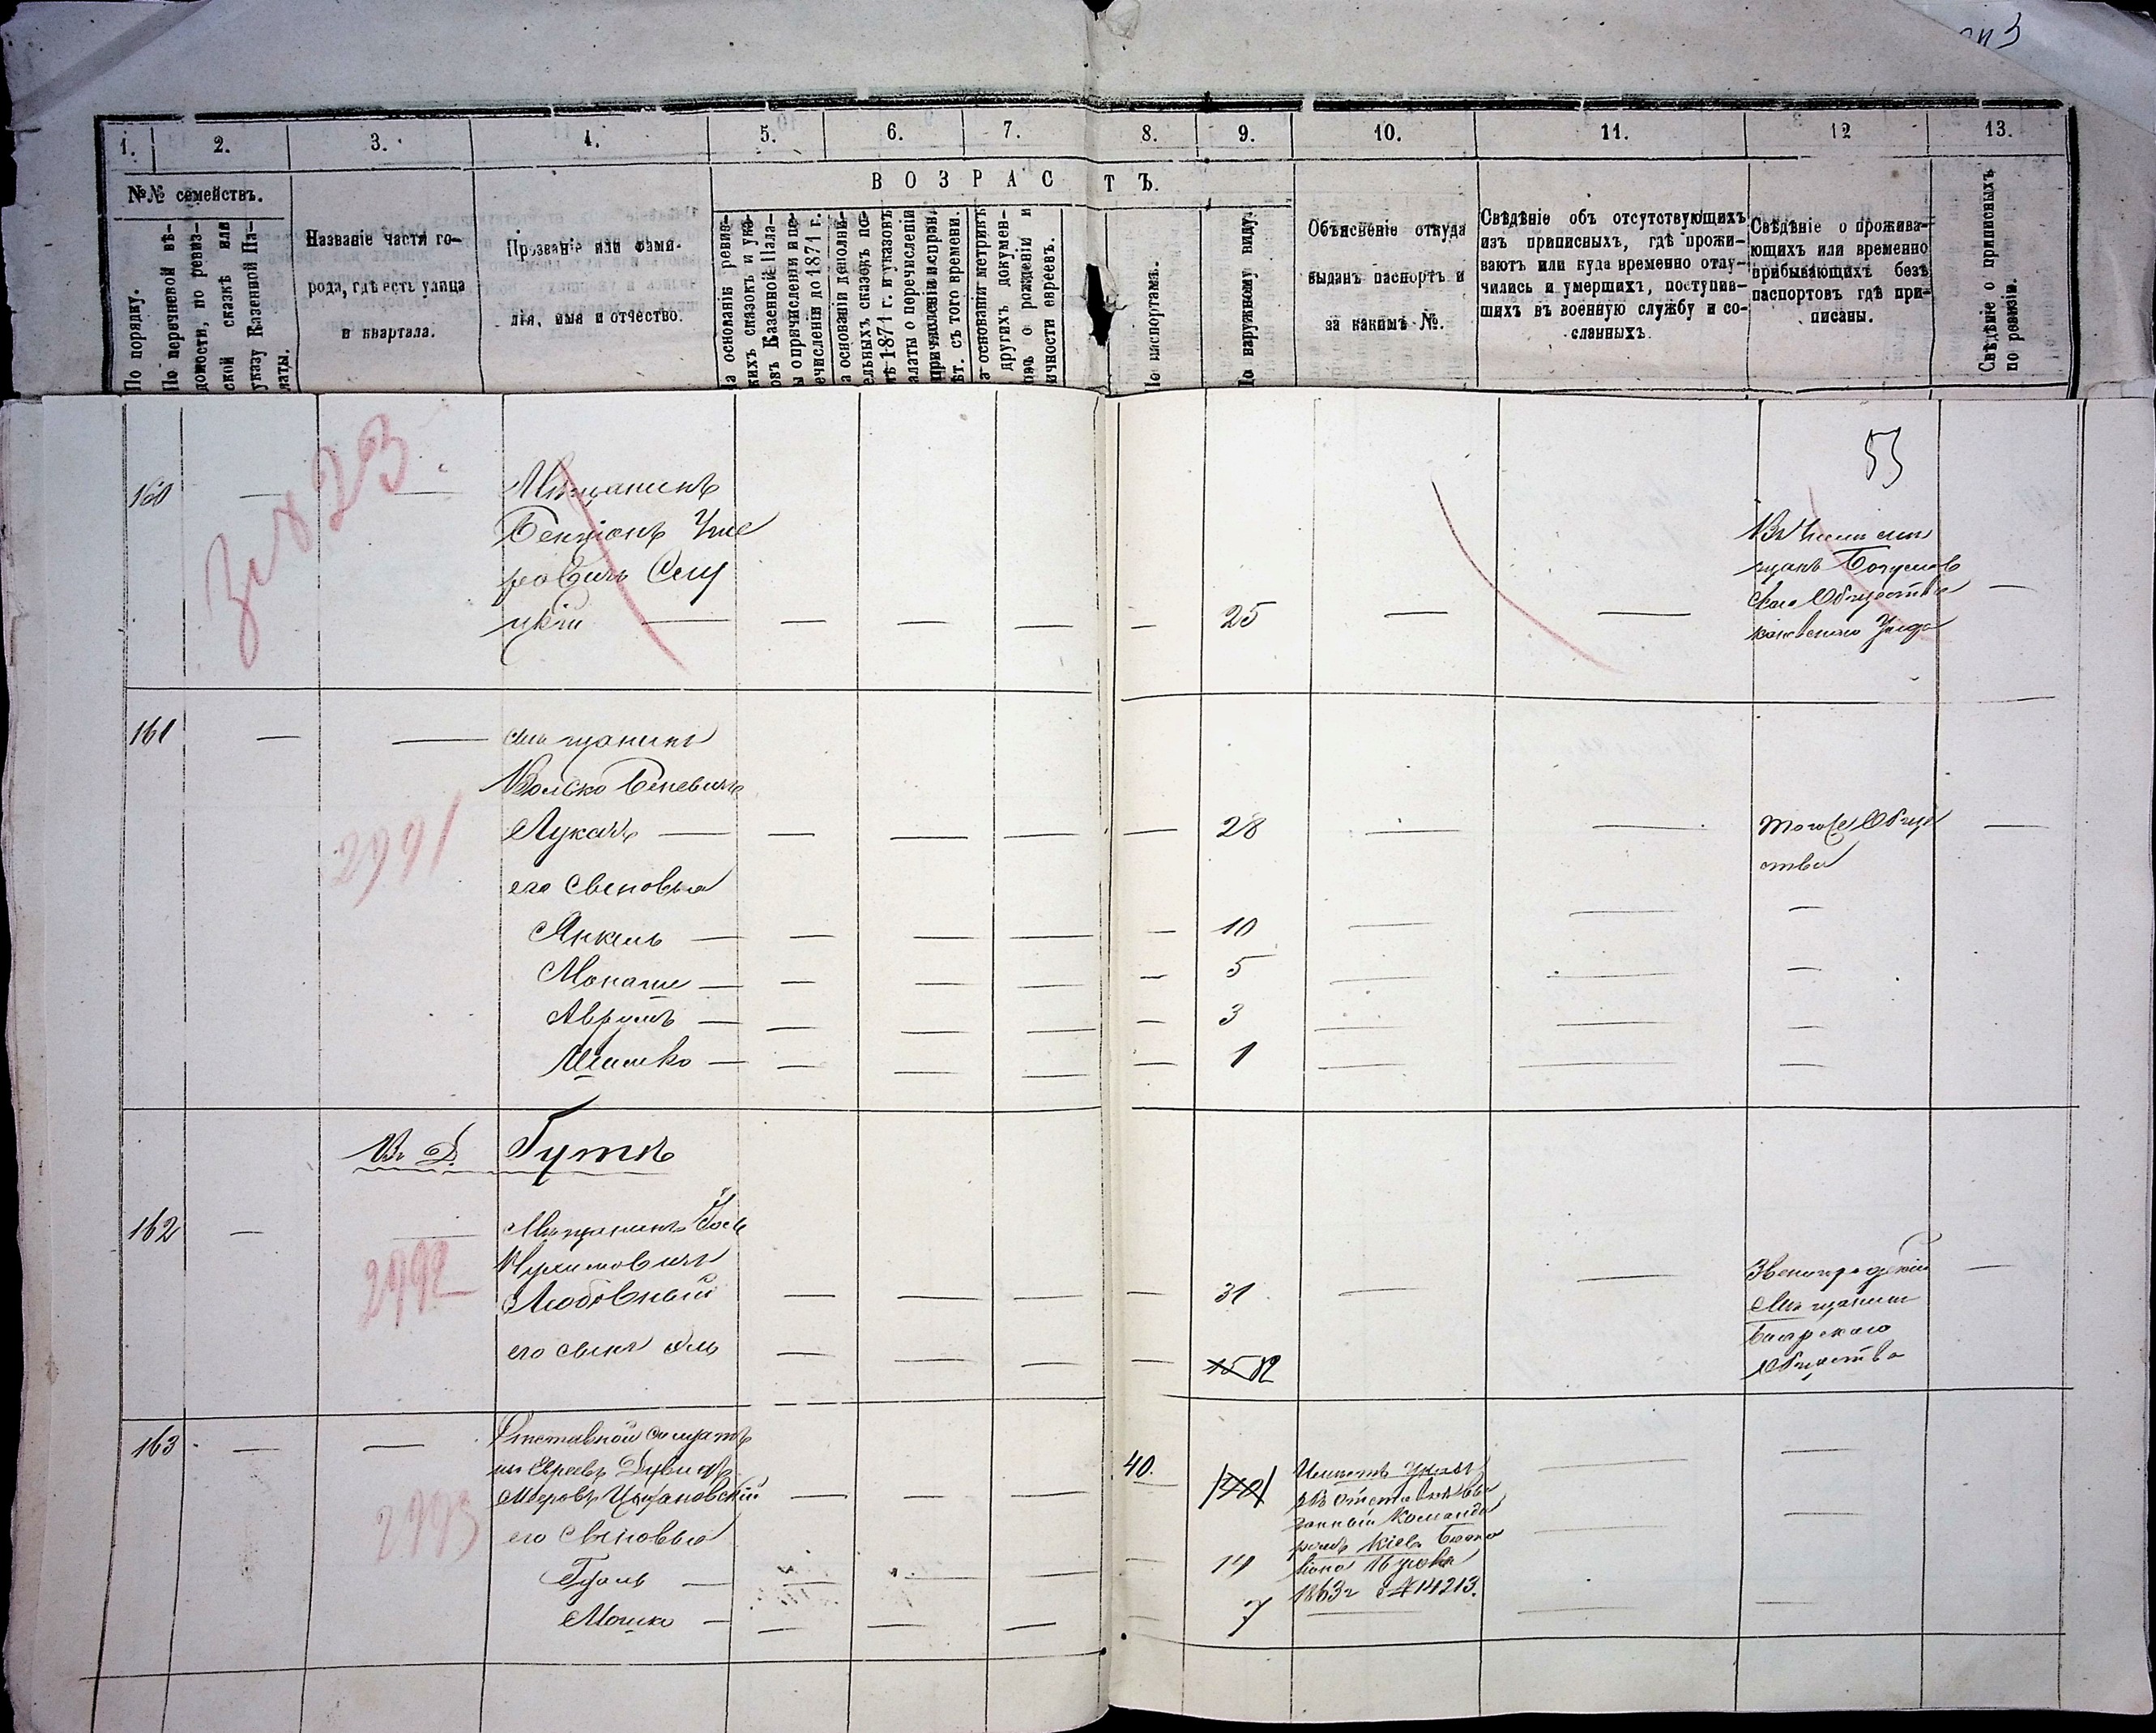 1.
2.
3.
4.
5.
6.
7.
8.
9.
10.
11.
12
13.
№№ семействъ.
ВОЗРАСТЪ.
По порядку.
По перечневой вѣ-
домости, по ревиз-
ской сказкѣ или
указу Казенной Па-
латы.
Названіе части го-
рода, гдѣ есть улица
и квартала.
Прозваніе или фами-
лія, имя и отчество.
а основаніи ревиз-
кихъ сказокъ и ука-
овъ Казенной Пала-
ы о причисленіи и пе-
ечисленіи до 1871 г.
а основаніи дополни-
ельныхъ сказокъ по-
лѣ 1871 г. и указовъ
алаты о перечисленіи
причисленіи и исправ.
ѣт. съ того времени.
а основаніи метрикъ
другихъ докумен-
овъ о рожденіи и
ичности евреевъ.
По паспортамъ.
По наружному виду.
Объясненіе откуда
выданъ паспортъ и
за какимъ №.
Свѣдѣніе объ отсутствующихъ
изъ приписныхъ, гдѣ прожи-
ваютъ или куда временно отлу-
чились и умершихъ, поступив-
шихъ въ военную службу и со-
сланныхъ.
Свѣдѣніе о прожива-
ющихъ или временно
прибывающихъ безъ
паспортовъ гдѣ при-
писаны.
Свѣдѣніе о приписныхъ
по ревизіи.
53
160
Мѣщанинъ
Бенціонъ
ровичъ
цкій
25
мѣ
щанъ Богуслав
скаго Общества
Каневскаго Уезда
161
2991
мѣщанинъ
Волько Беневичъ
Лукачъ
28
Того же Обще
ства
его Сыновья
Янкель
10
Монаше
5
Аврумъ
3
Мошко
1
Въ Д. Гутѣ
162
2992
Мѣщанинъ Іось
Нухимовичъ
Любовный
31
Звенигородскій
Мѣщанинъ
Боярскаго
Общества
его сынъ
15 12
163
2993
Отставной Солдатъ
изъ Евреевъ Дувидъ
Меровъ Цыгановскій
40.
Имѣетъ Указъ
объ отставкѣ вы
данный Команди
ромъ Кіев. Бата
1863 г № 14213.
его Сыновья
Гдаль
14
Мошко
7